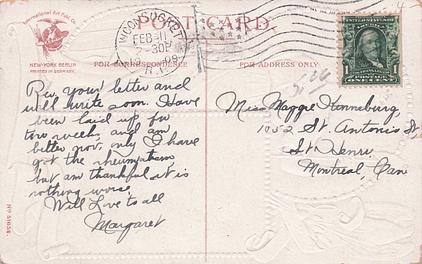 International Art Pub. Co.
NEW-YORK BERLIN
PRINTED IN GERMANY.
POST CARD.
WOONSOCKET
FEB 11
2-30P
1909
R.I.
FOR CORRESPONDENCE
FOR ADDRESS ONLY
1
Rec, your letter and
will write soon. Have
been laid up for
two weeks, and am
better now, only I have
got the rheumatism
but am thankful it is
nothing worse.
Will Love to all
Margaret
Miss Maggie
1052 St. Antonis St
St Henri
Montreal, Can